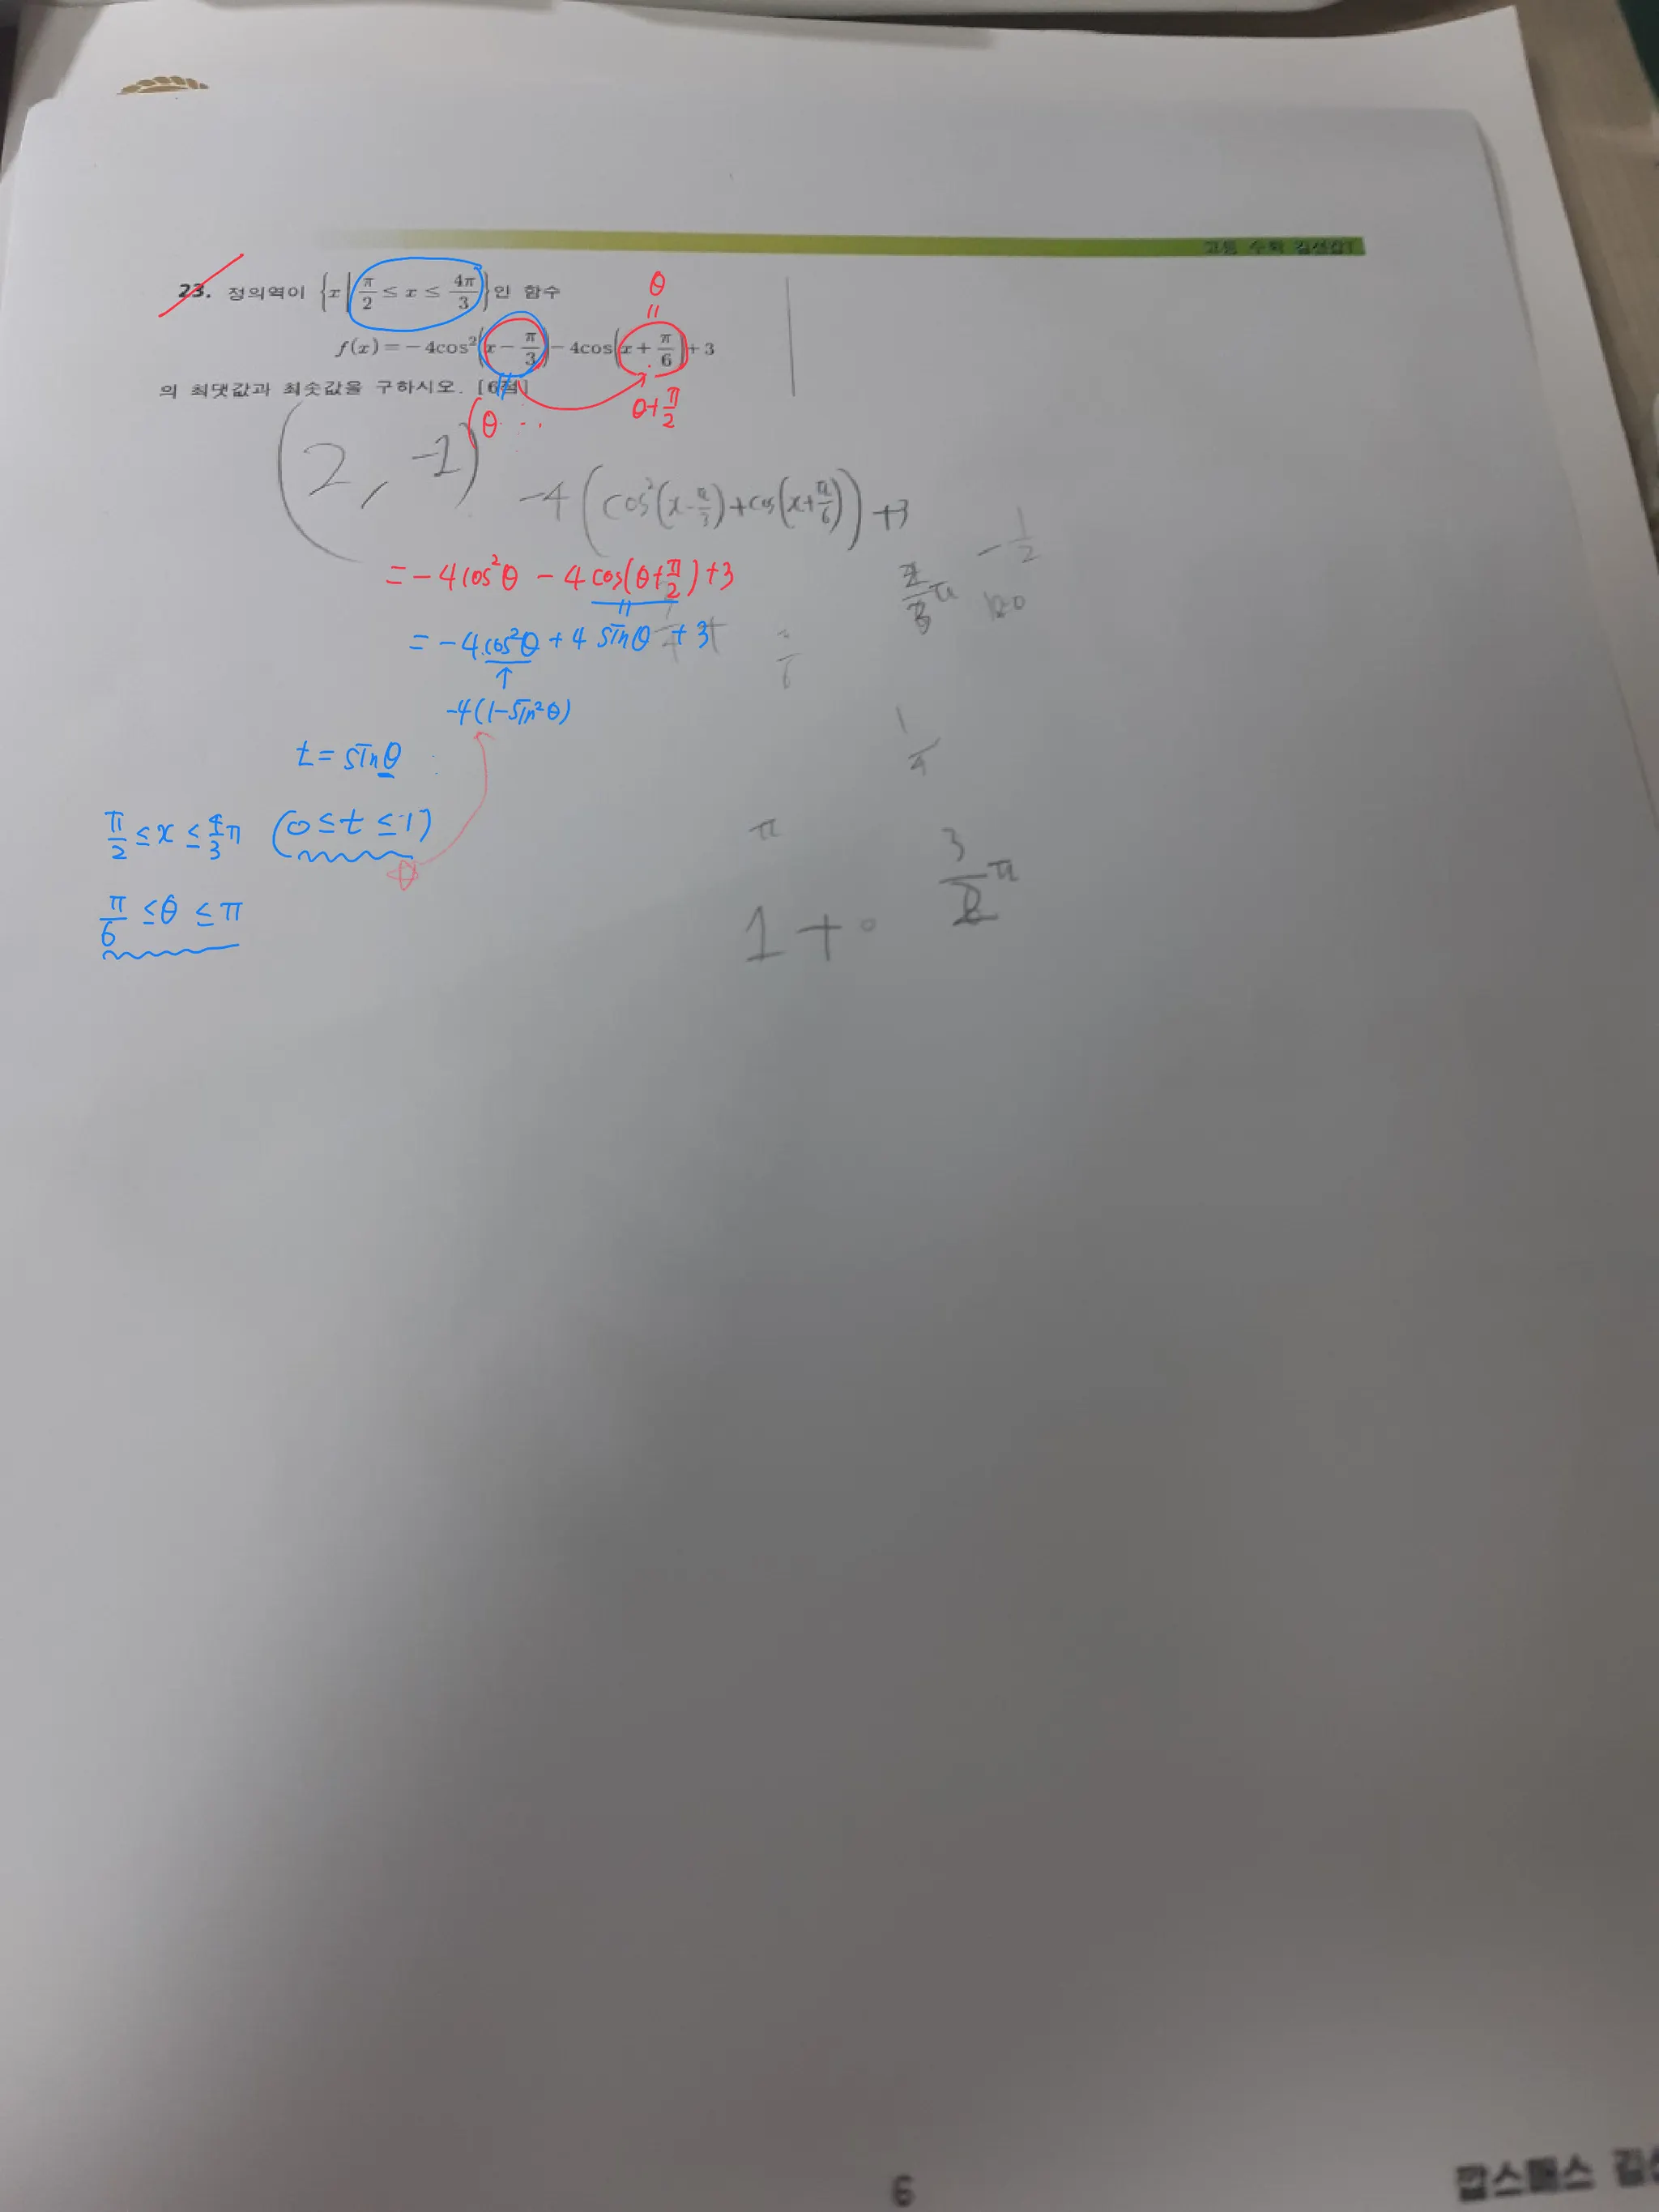 고등 수학 김선갑
23. 정의역이 {x | π/2 ≤ x ≤ 4π/3}인 함수
θ
=
f(x) = -4cos²(x - π/3) - 4cos(x + π/6) + 3
의 최댓값과 최솟값을 구하시오. [6점]
θ+π/2
θ
(2, -1)
-4(cos²(x-π/3)+cos(x+π/6))+3
-1/2
= -4cos²θ - 4cos(θ+π/2)+3
= -4cos²θ + 4sinθ + 3
↑
-4(1-sin²θ)
t = sinθ
1/4
π/2 ≤ x ≤ 4/3π (0≤t≤1)
π
3/2π
π/6 ≤ θ ≤ π
1+0
6